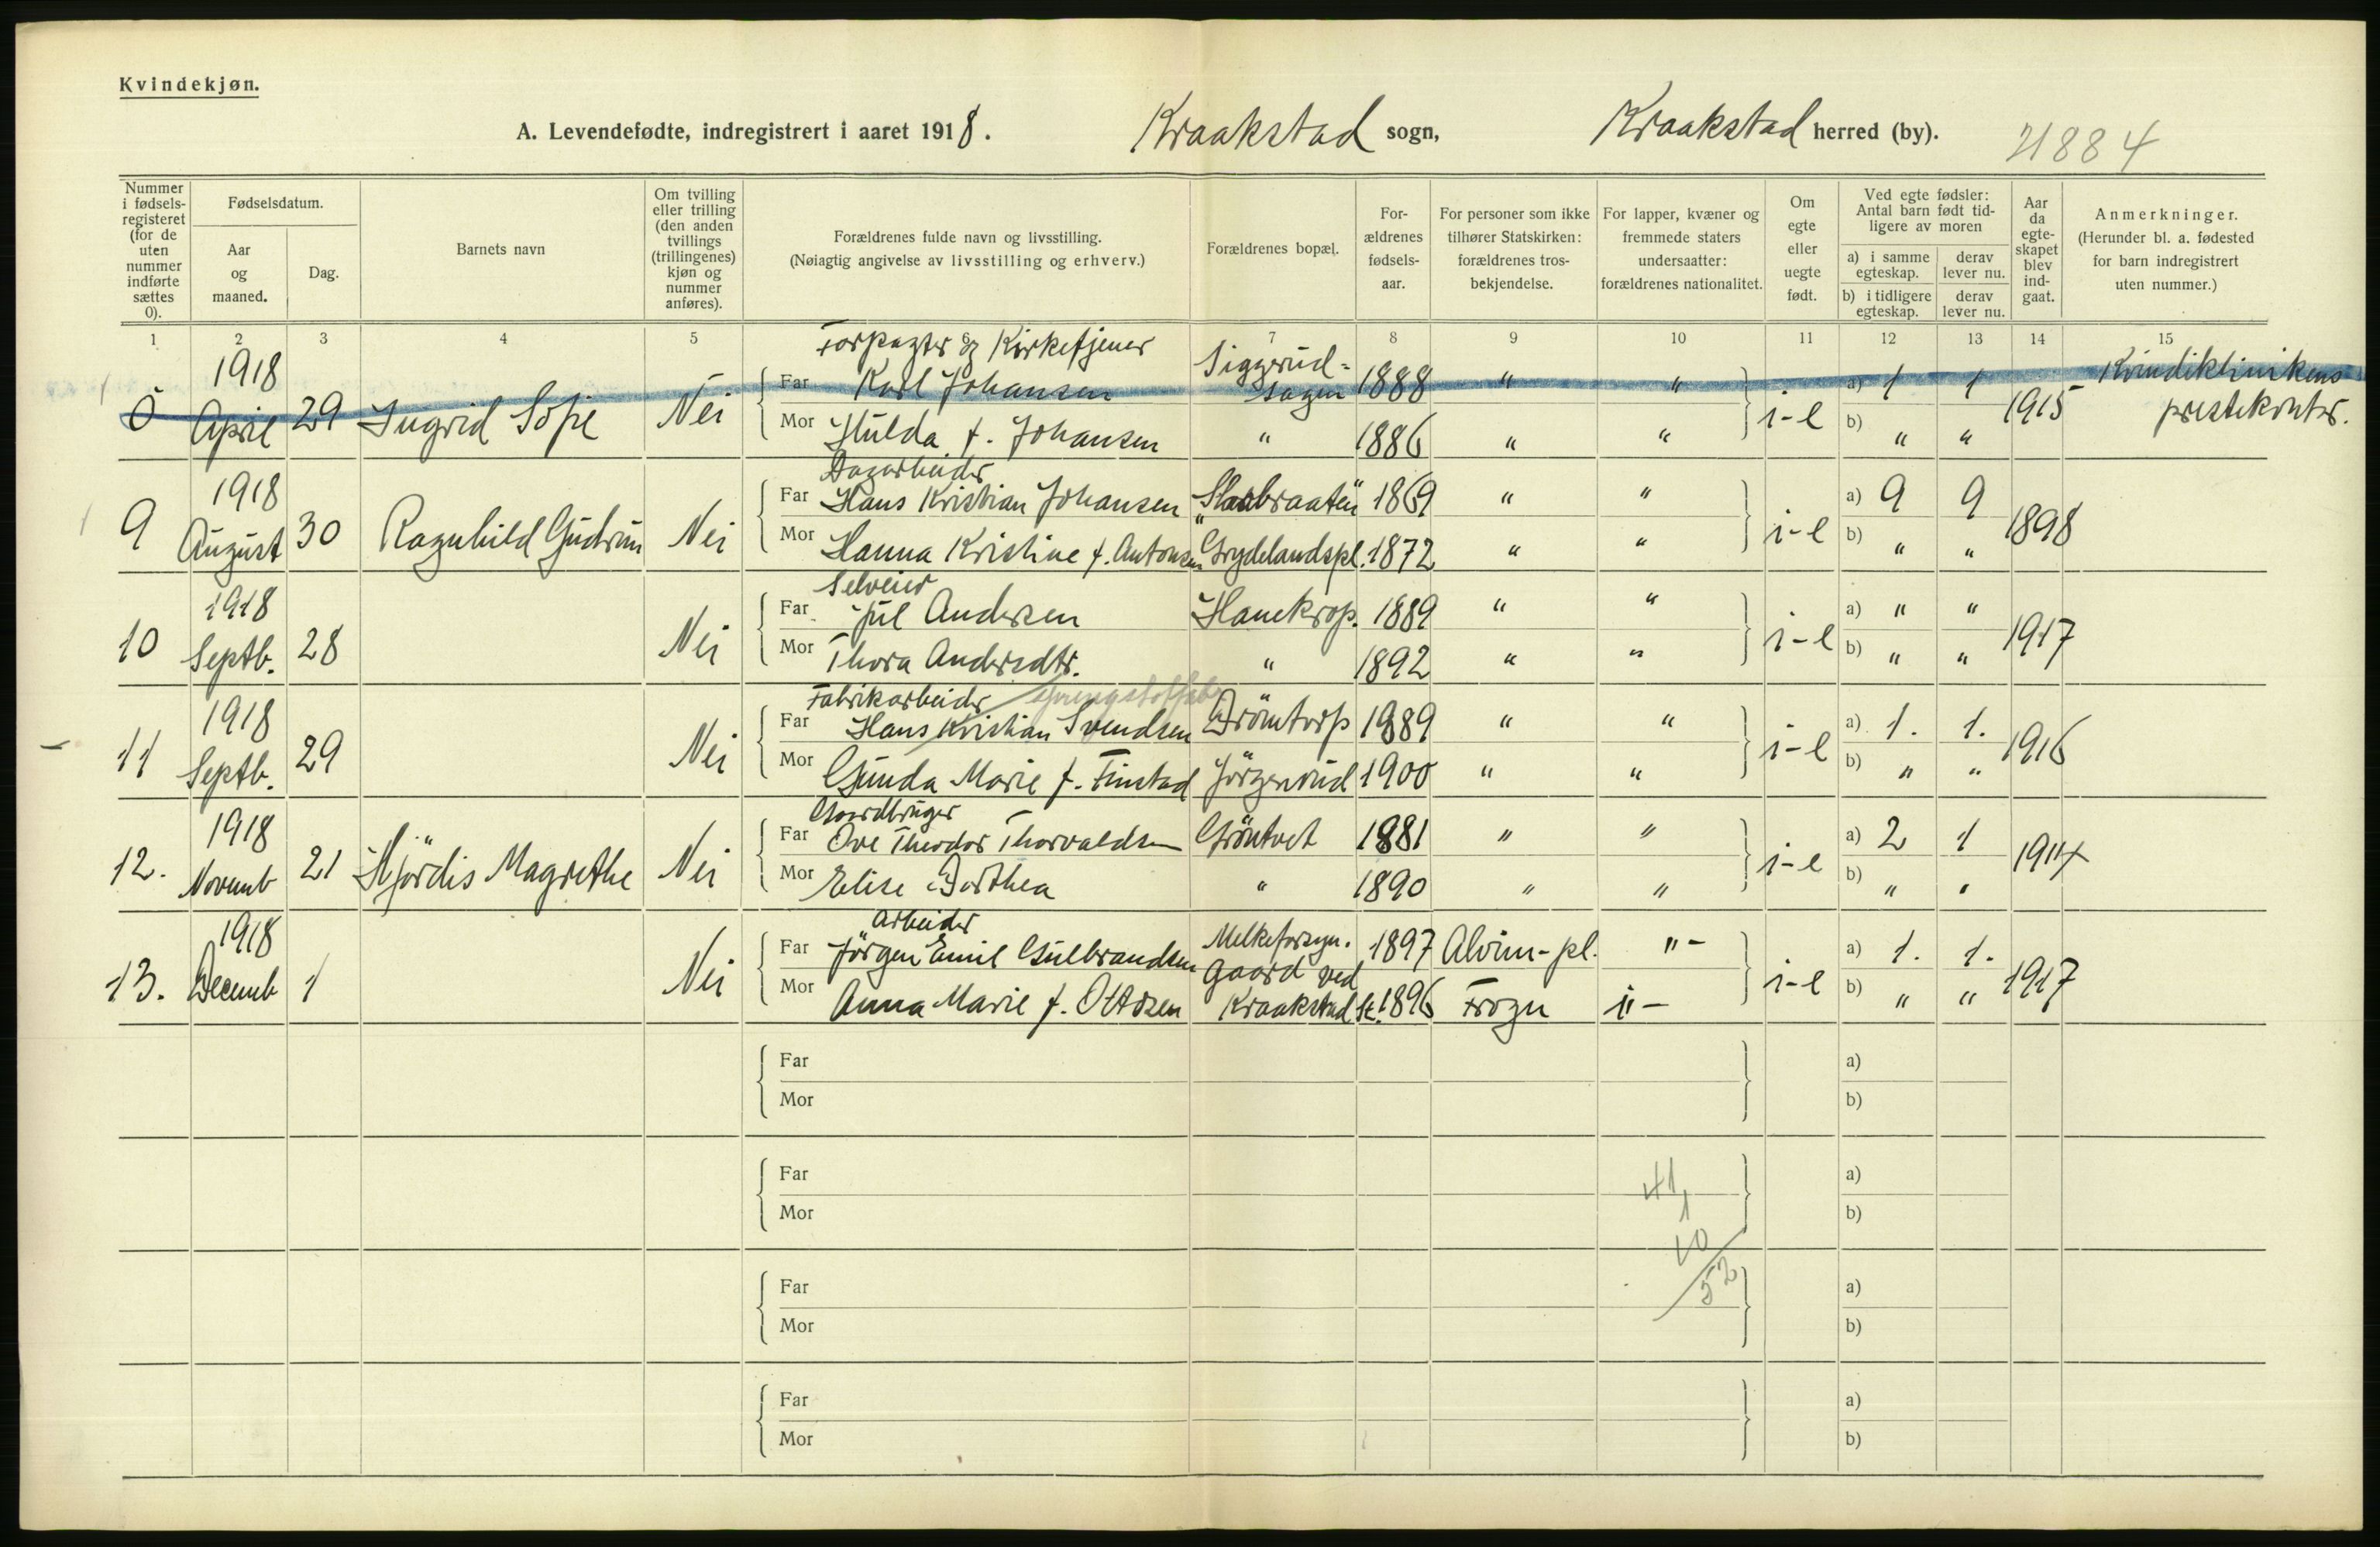 Kvindekjøn.
A. Levendefødte, indregistrert i aaret 1918. Kraakstad sogn, Kraakstad herred (by). 21884
Nummer i fødsels-registeret (for de uten nummer indførte sættes 0).
Fødselsdatum.
Aar og maaned.
Dag.
Barnets navn
Om tvilling eller trilling (den anden tvillings (trillingenes) kjøn og nummer anføres).
Forældrenes fulde navn og livsstilling.
(Nøiagtig angivelse av livsstilling og erhverv.)
Forældrenes bopæl.
For-ældrenes fødsels-aar.
For personer som ikke tilhører Statskirken: forældrenes tros-bekjendelse.
For lapper, kvæner og fremmede staters undersaatter: forældrenes nationalitet.
Om egte eller uegte født.
Ved egte fødsler: Antal barn født tid-ligere av moren
a) i samme egteskap.
derav lever nu.
b) i tidligere egteskap.
derav lever nu.
Aar da egte-skapet blev ind-gaat.
Anmerkninger.
(Herunder bl. a. fødested for barn indregistrert uten nummer.)
1 2 3 4 5 6 7 8 9 10 11 12 13 14 15
Forpagter og Kirketjener
0 1918 April 29 Ingrid Sofie Nei
Far Karl Johansen Siggerud-sagen 1888 " " i-e a) 1 1 1915 Kvindeklinikens
Mor Hulda f. Johansen " 1886 " " b) " " prestekontor.
Dagarbeider
9 1918 August 30 Ragnhild Gudrun Nei
Far Hans Kristian Johansen 1869 " " i-e a) 9 9 1898
Mor Hanna Kristine f. Antonsen Grydelandspl. 1872 " " b) " "
Selveier
10 1918 Septb. 28 Nei
Far Jul Andersen Hanekrop. 1889 " " i-e a) " " 1917
Mor Thora Andersdtr. " 1892 " " b) " "
Fabrikarbeider
11 1918 Septb. 29 Nei
Far Hans Kristian Svendsen Drömtorp 1889 " " i-e a) 1. 1. 1916
Mor Gunda Marie f. Finstad Jörgenrud 1900 " " b) " "
Gaardbruger
12. 1918 Novemb 21 Hjördis Magrethe Nei
Far Ove Theodor Thorvaldsen Gröntvet 1881 " " i-e a) 2 1
Mor Elise Dorthea " 1890 " " b) " "
Arbeider
13. 1918 Decemb 1 Nei
Far Jörgen Emil Gulbrandsen Melkeforsyn. 1897 Alvim-pl. "- i-e a) 1. 1. 1917
Gaard ved
Mor Anna Marie f. Ottosen Kraakstad St. 1896 Frogn "- b) " "
Far a)
Mor b)
Far 41 a)
Mor 1 b)
10
Far 52 a)
Mor b)
Far a)
Mor b)